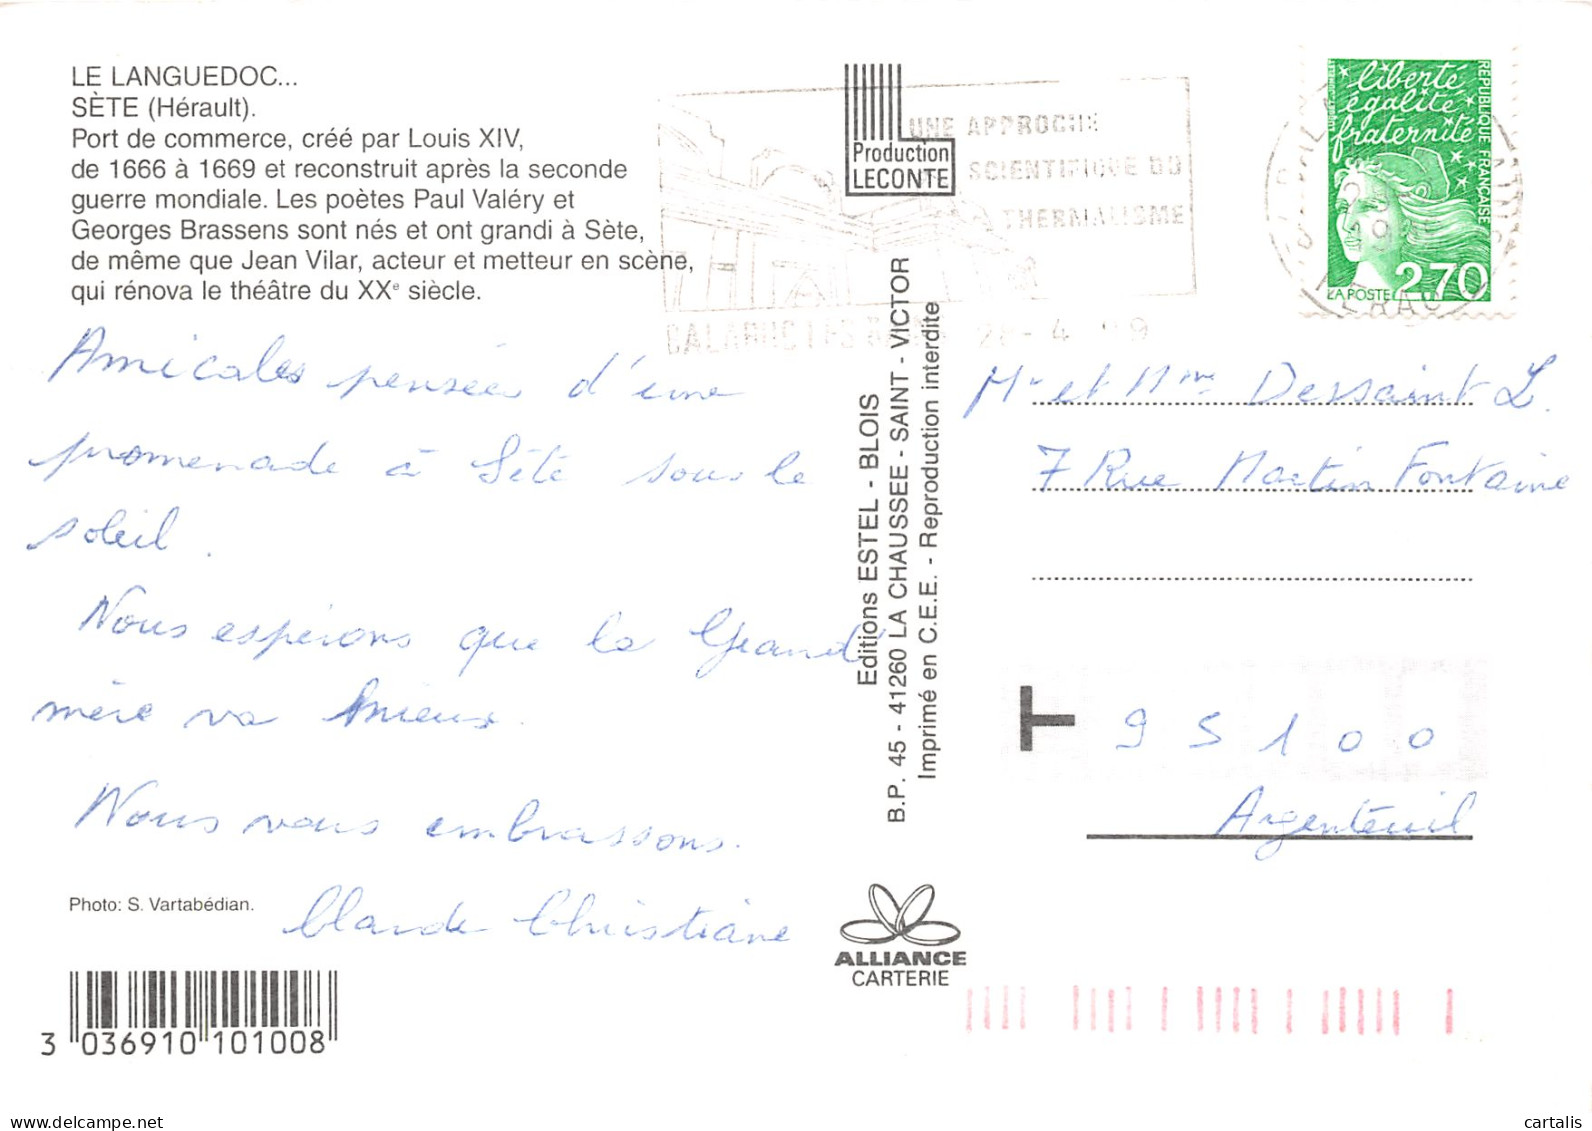 LE LANGUEDOC...
SÈTE (Hérault).
Port de commerce, créé par Louis XIV,
de 1666 à 1669 et reconstruit après la seconde
guerre mondiale. Les poètes Paul Valéry et
Georges Brassens sont nés et ont grandi à Sète,
de même que Jean Vilar, acteur et metteur en scène,
qui rénova le théâtre du XXe siècle.
Amicales pensées d'une
promenade à Sète sous le
soleil.
Nous espérons que la Grand
mère va mieux.
Nous vous embrassons.
Claude Christiane
Photo: S. Vartabédian.
3 036910 101008
Production
LECONTE
UNE APPROCHE
SCIENTIFIQUE DU
THERMALISME
BALARUC LES BAINS 26-4 99
Editions ESTEL - BLOIS
B.P. 45 - 41260 LA CHAUSSEE - SAINT - VICTOR
Imprimé en C.E.E. - Reproduction interdite
ALLIANCE
CARTERIE
liberté
égalité
fraternité
REPUBLIQUE FRANÇAISE
LA POSTE 2,70
Mr et Mme Dessaint L.
7 Rue Martin Fontaine
T
95100
Argenteuil
www.delcampe.net
cartalis